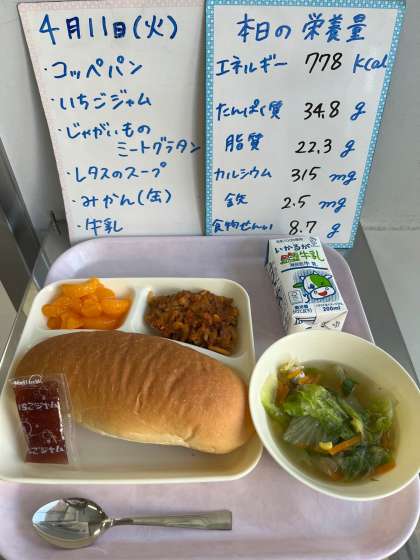 4月11日(火)
・コッペパン
・いちごジャム
・じゃがいもの
ミートグラタン
・レタスのスープ
・みかん(缶)
・牛乳
本日の栄養量
エネルギー 778 Kcal
たんぱく質 34.8 g
脂質 22.3 g
カルシウム 315 mg
鉄 2.5 mg
食物せんい 8.7 g
いかるが
牛乳
200ml
いちごジャム